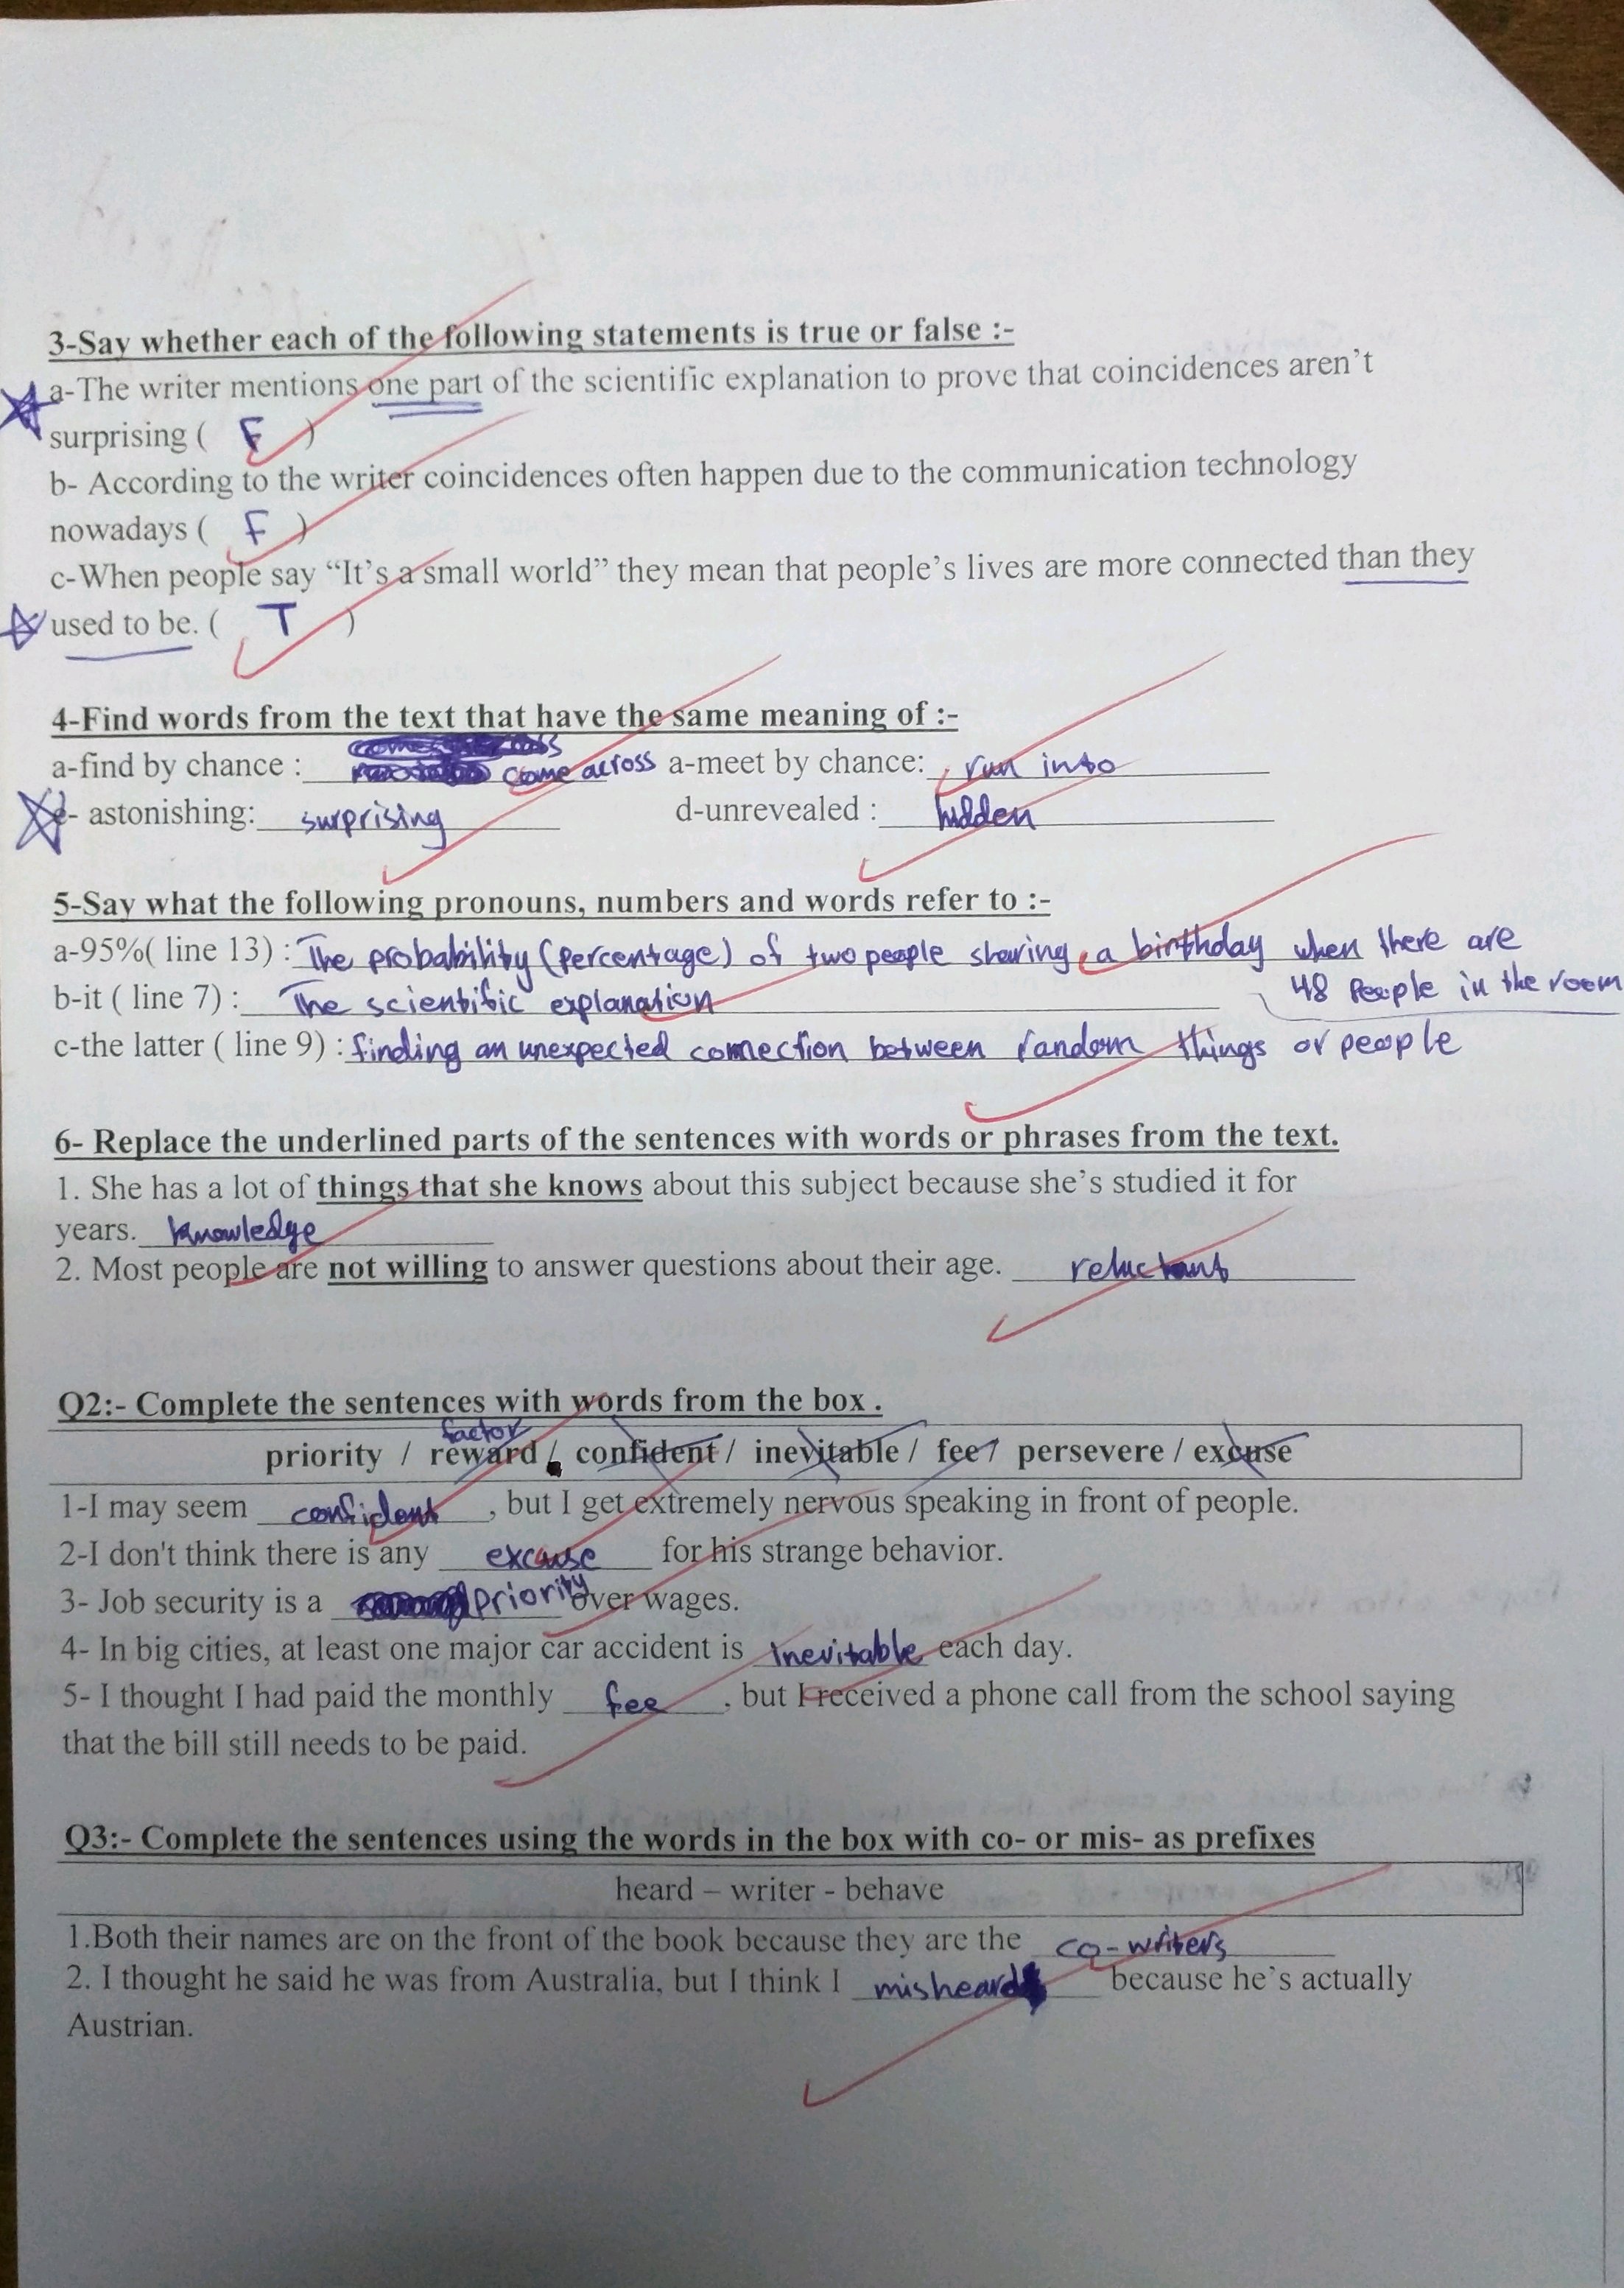 3-Say whether each of the following statements is true or false :-
a-The writer mentions one part of the scientific explanation to prove that coincidences aren't
surprising ( F )
b- According to the writer coincidences often happen due to the communication technology
nowadays ( F )
c-When people say “It's a small world” they mean that people's lives are more connected than they
used to be. ( T )
4-Find words from the text that have the same meaning of :-
a-find by chance : come across a-meet by chance: run into
- astonishing: surprising d-unrevealed : hidden
5-Say what the following pronouns, numbers and words refer to :-
a-95%( line 13) : The probability (percentage) of two people sharing a birthday when there are
48 people in the room
b-it ( line 7) : The scientific explanation
c-the latter ( line 9) : finding an unexpected connection between random things or people
6- Replace the underlined parts of the sentences with words or phrases from the text.
1. She has a lot of things that she knows about this subject because she's studied it for
years. knowledge
2. Most people are not willing to answer questions about their age. reluctant
Q2:- Complete the sentences with words from the box .
factor
priority / reward / confident / inevitable / fee / persevere / excuse
1-I may seem confident , but I get extremely nervous speaking in front of people.
2-I don't think there is any excuse for his strange behavior.
3- Job security is a priority over wages.
4- In big cities, at least one major car accident is inevitable each day.
5- I thought I had paid the monthly fee , but I received a phone call from the school saying
that the bill still needs to be paid.
Q3:- Complete the sentences using the words in the box with co- or mis- as prefixes
heard – writer - behave
1.Both their names are on the front of the book because they are the co-writers
2. I thought he said he was from Australia, but I think I misheard because he's actually
Austrian.